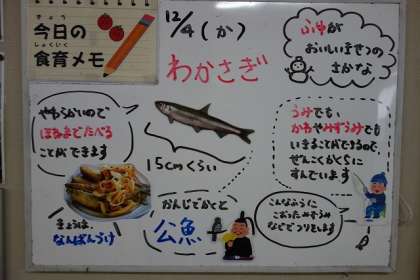 きょう
今日の
しょくいく
食育メモ
12/4(か)
わかさぎ
ふゆが
おいしいきせつの
さかな
やわらかいので
ほねまでたべる
ことができます
15cmくらい
うみでも
かわやみずうみでも
いきることができるので、
ぜんこくかくちに
すんでいます
きょうは、
なんばんづけ
かんじでかくと
公魚
こんなふうに
こおったみずうみ
などでつりをします